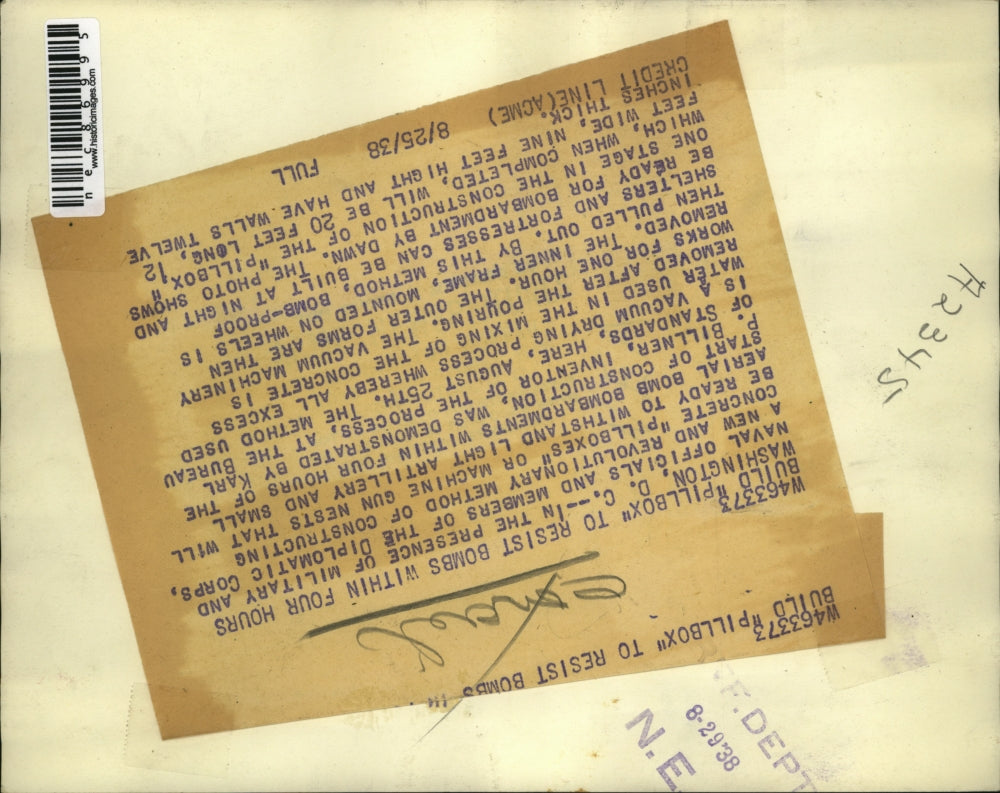 N.E.
F. DEPT
8-29'38
W463373
BUILD "PILLBOX" TO RESIST BOMBS
W463373
BUILD "PILLBOX" TO RESIST BOMBS WITHIN FOUR HOURS
WASHINGTON, D. C.--IN THE PRESENCE OF MILITARY AND
NAVAL OFFICIALS AND MEMBERS OF THE DIPLOMATIC CORPS,
A NEW AND REVOLUTIONARY METHOD OF CONSTRUCTING
CONCRETE "PILLBOXES" OR MACHINE GUN NESTS THAT WILL
BE READY TO WITHSTAND LIGHT ARTILLERY AND SMALL
AERIAL BOMB BOMBARDMENTS WITHIN FOUR HOURS OF THE
START OF CONSTRUCTION, WAS DEMONSTRATED BY KARL
P. BILLNER, INVENTOR OF THE PROCESS, AT THE BUREAU
OF STANDARDS, HERE, AUGUST 25TH. THE METHOD USED
IS A VACUUM DRYING PROCESS WHEREBY ALL EXCESS
WATER USED IN THE MIXING OF THE CONCRETE IS
REMOVED AFTER POURING. THE VACUUM MACHINERY
WORKS FOR ONE HOUR. THE OUTER FORMS ARE THEN
REMOVED. THE INNER FRAME, MOUNTED ON WHEELS IS
THEN PULLED OUT. BY THIS METHOD, BOMB-PROOF
SHELTERS AND FORTRESSES CAN BE BUILT AT NIGHT AND
BE READY FOR BOMBARDMENT BY DAWN. THE PHOTO SHOWS
ONE STAGE IN THE CONSTRUCTION OF THE "PILLBOX,"
WHICH, WHEN COMPLETED, WILL BE 20 FEET LONG, 12
FEET WIDE, NINE FEET HIGHT AND HAVE WALLS TWELVE
INCHES THICK.
CREDIT LINE(ACME) 8/25/38 FULL
nec86995
www.historicimages.com
H2345